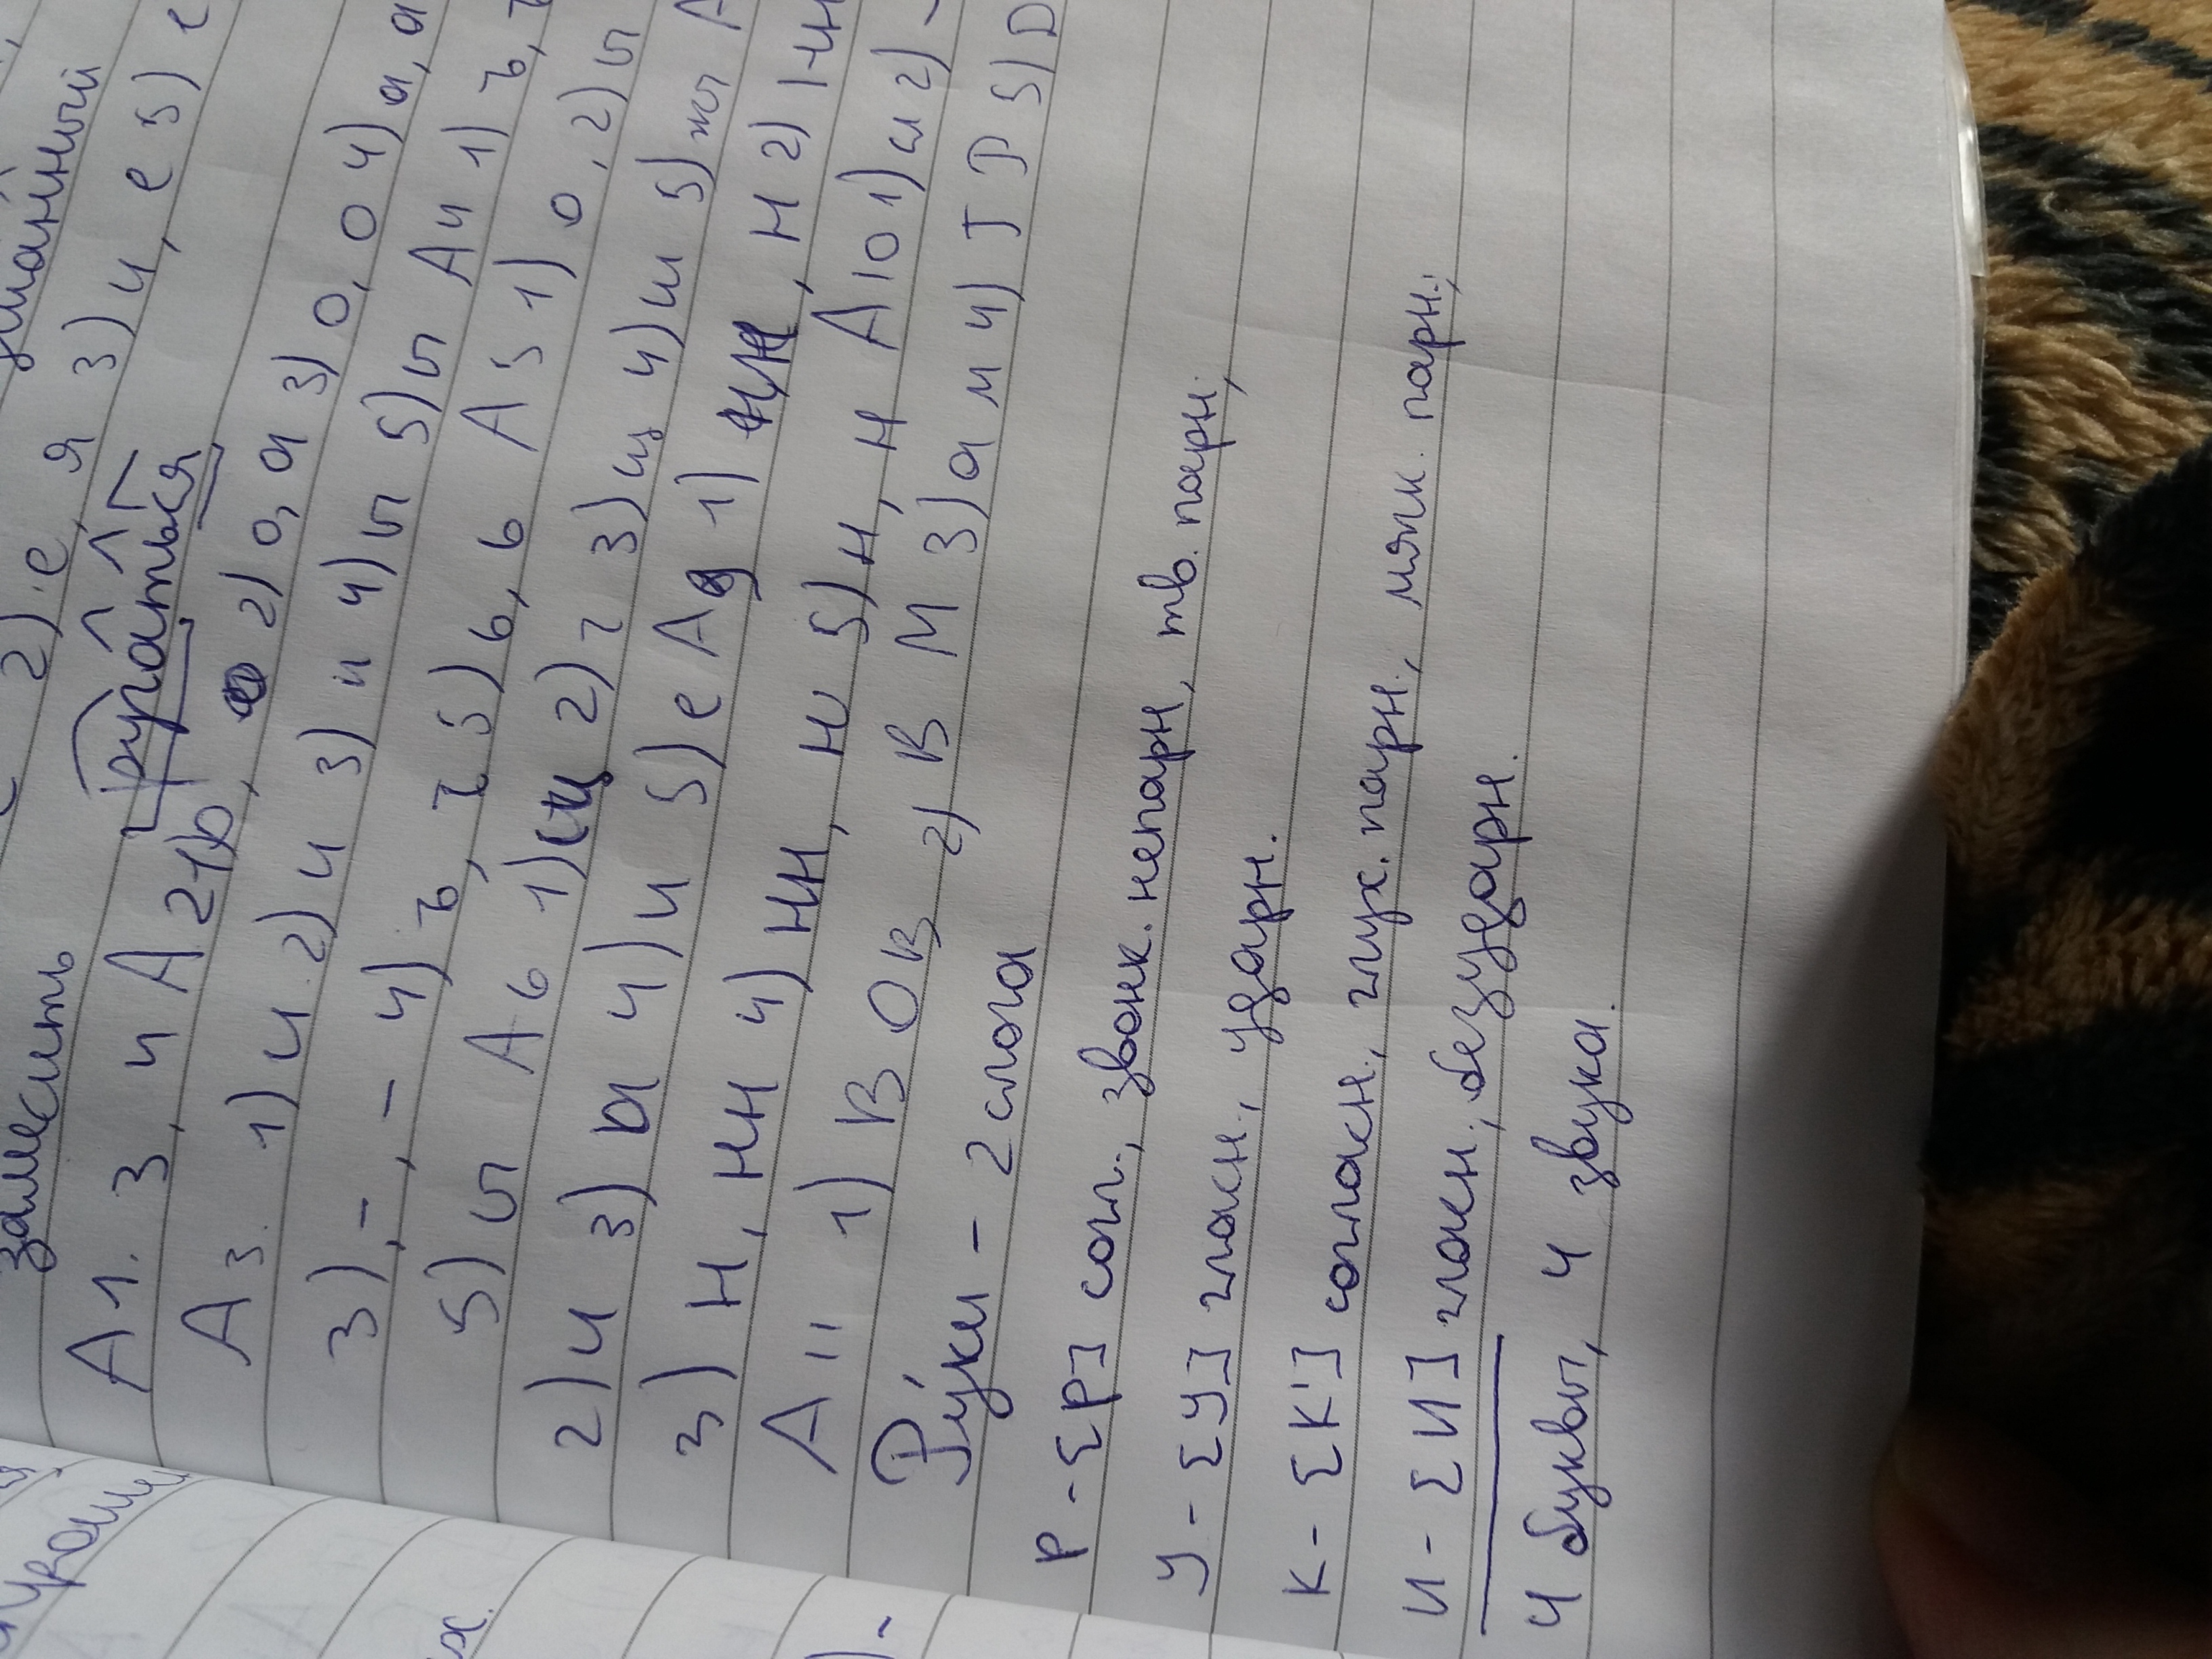 2) е, я 3) и, е 5) е
заместить
ругаться
А1. 3, 4 А2 1) о, 2) о, а 3) о, о 4) а, а
А3. 1) и 2) и 3) и 4) ы 5) ы А4 1) ъ,
3) -, -, - 4) ъ, ъ 5) ь, ь А5 1) о, 2) ы
5) ы А6 1) щ 2) г 3) щ 4) и 5) жы
2) и 3) ы 4) и 5) е А9 1) нн, н 2) нн
3) н, нн 4) нн, н 5) н, н А10 1) а 2) -
А11 1) В ОВ 2) В М 3) а м 4) Т Р 5) D
Ру́ки - 2 слога
Р - [Р] согл., звонк. непарн, тв. парн,
У - [У] гласн., ударн.
К - [К'] согласн., глух. парн, мягк. парн.,
И - [И] гласн., безударн.
4 буквы, 4 звука.